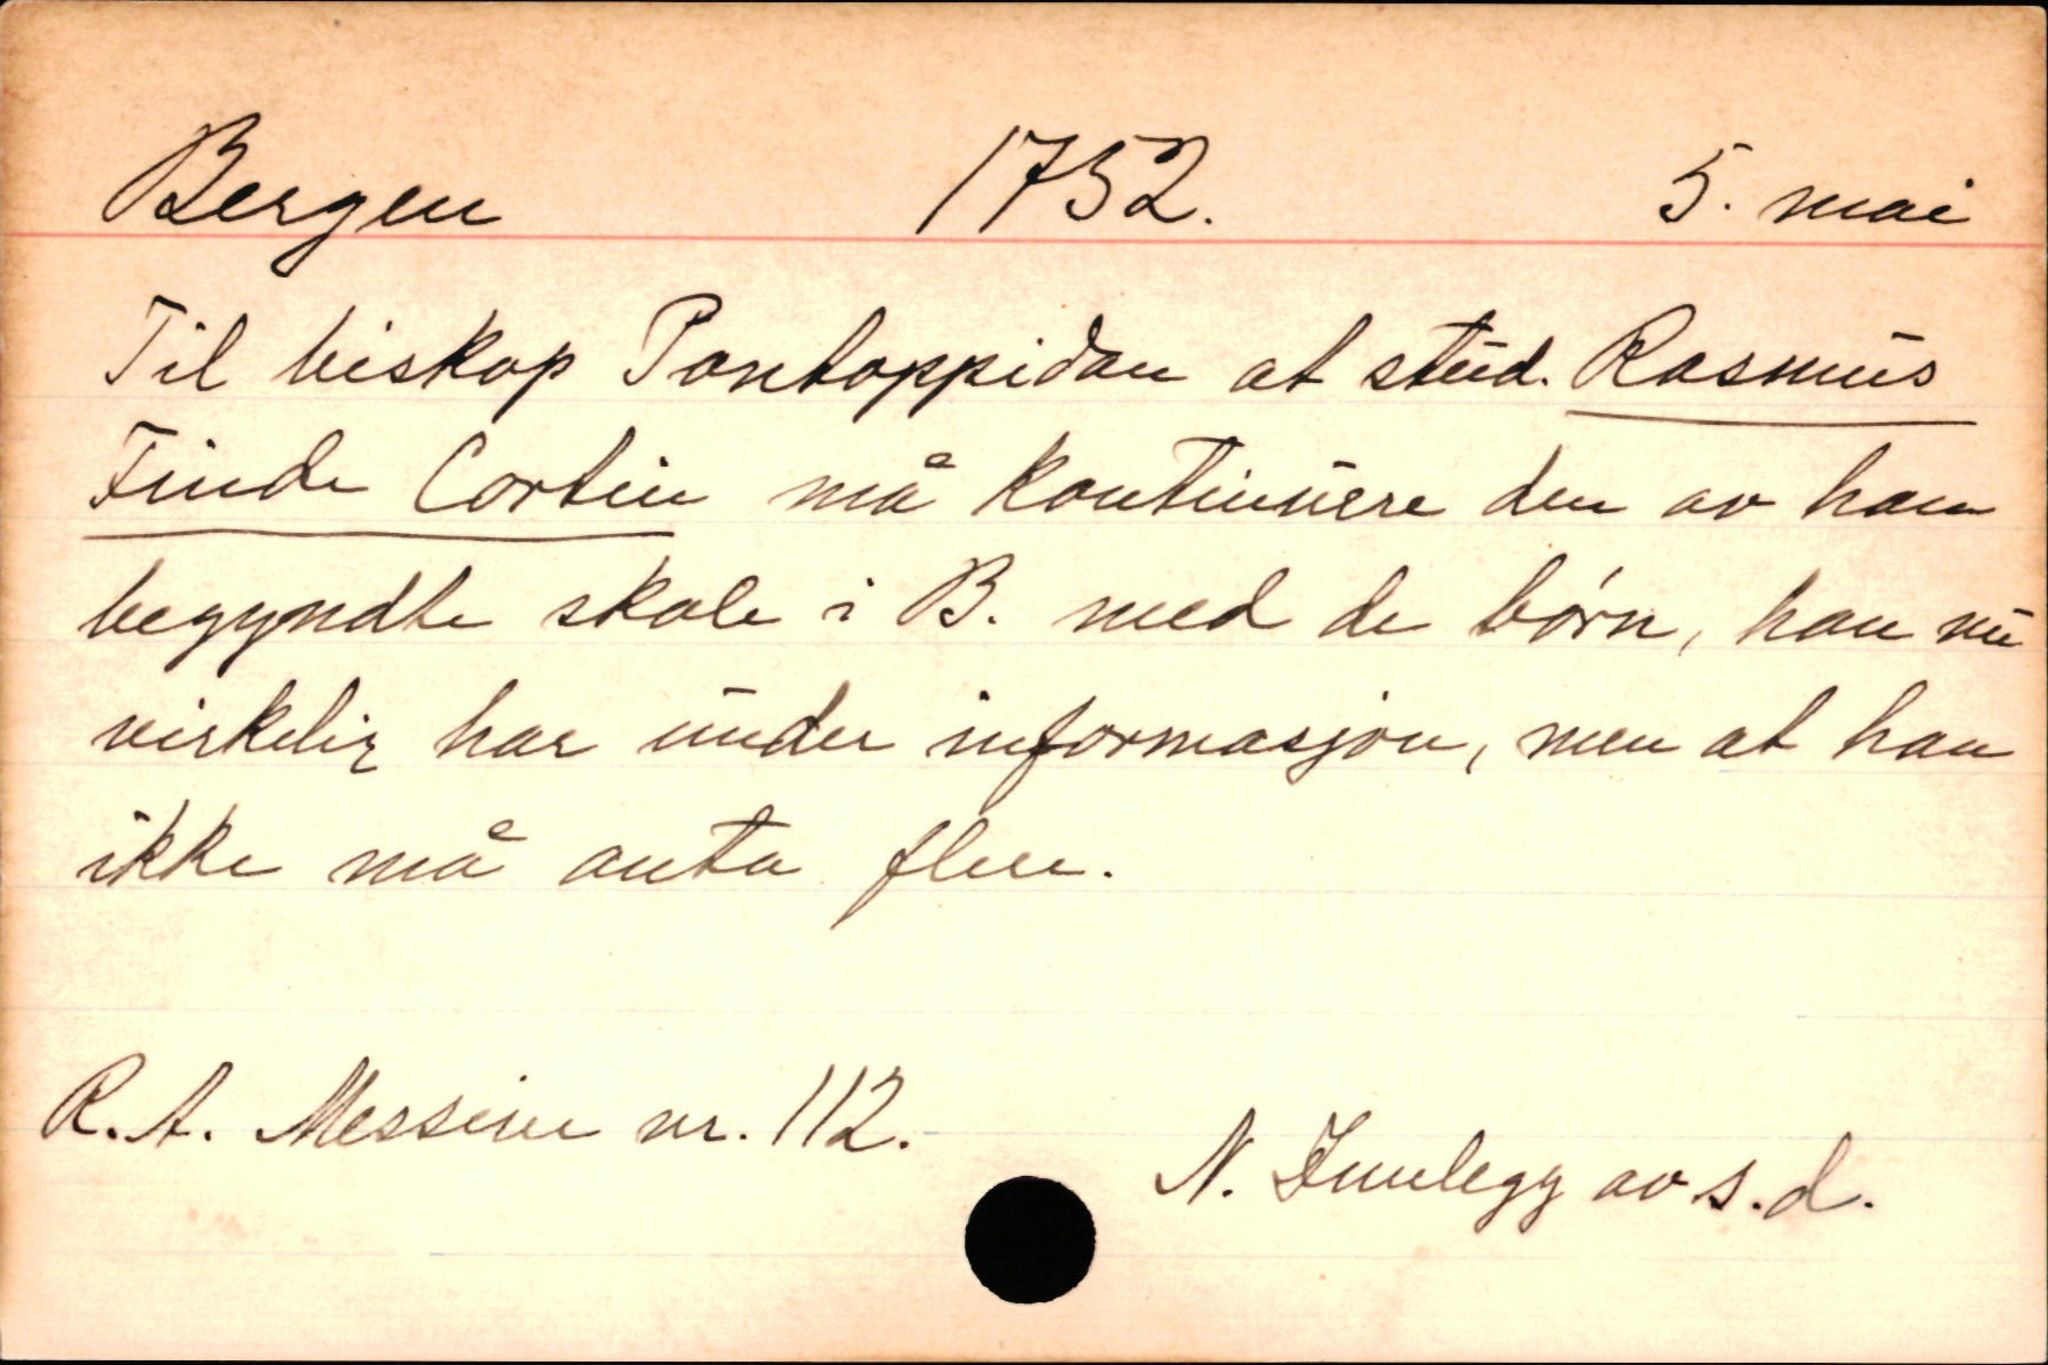 Bergen 1752. 5. mai
Til biskop Pontoppidan at stud. Rasmus
Finde Cortin må kontinuere den av ham
begyndte skole i B. med de børn, han nu
virkelig har under informasjon, men at han
ikke må anta flere.
R.A. Messive nr. 112.
N. Innlegg av s.d.